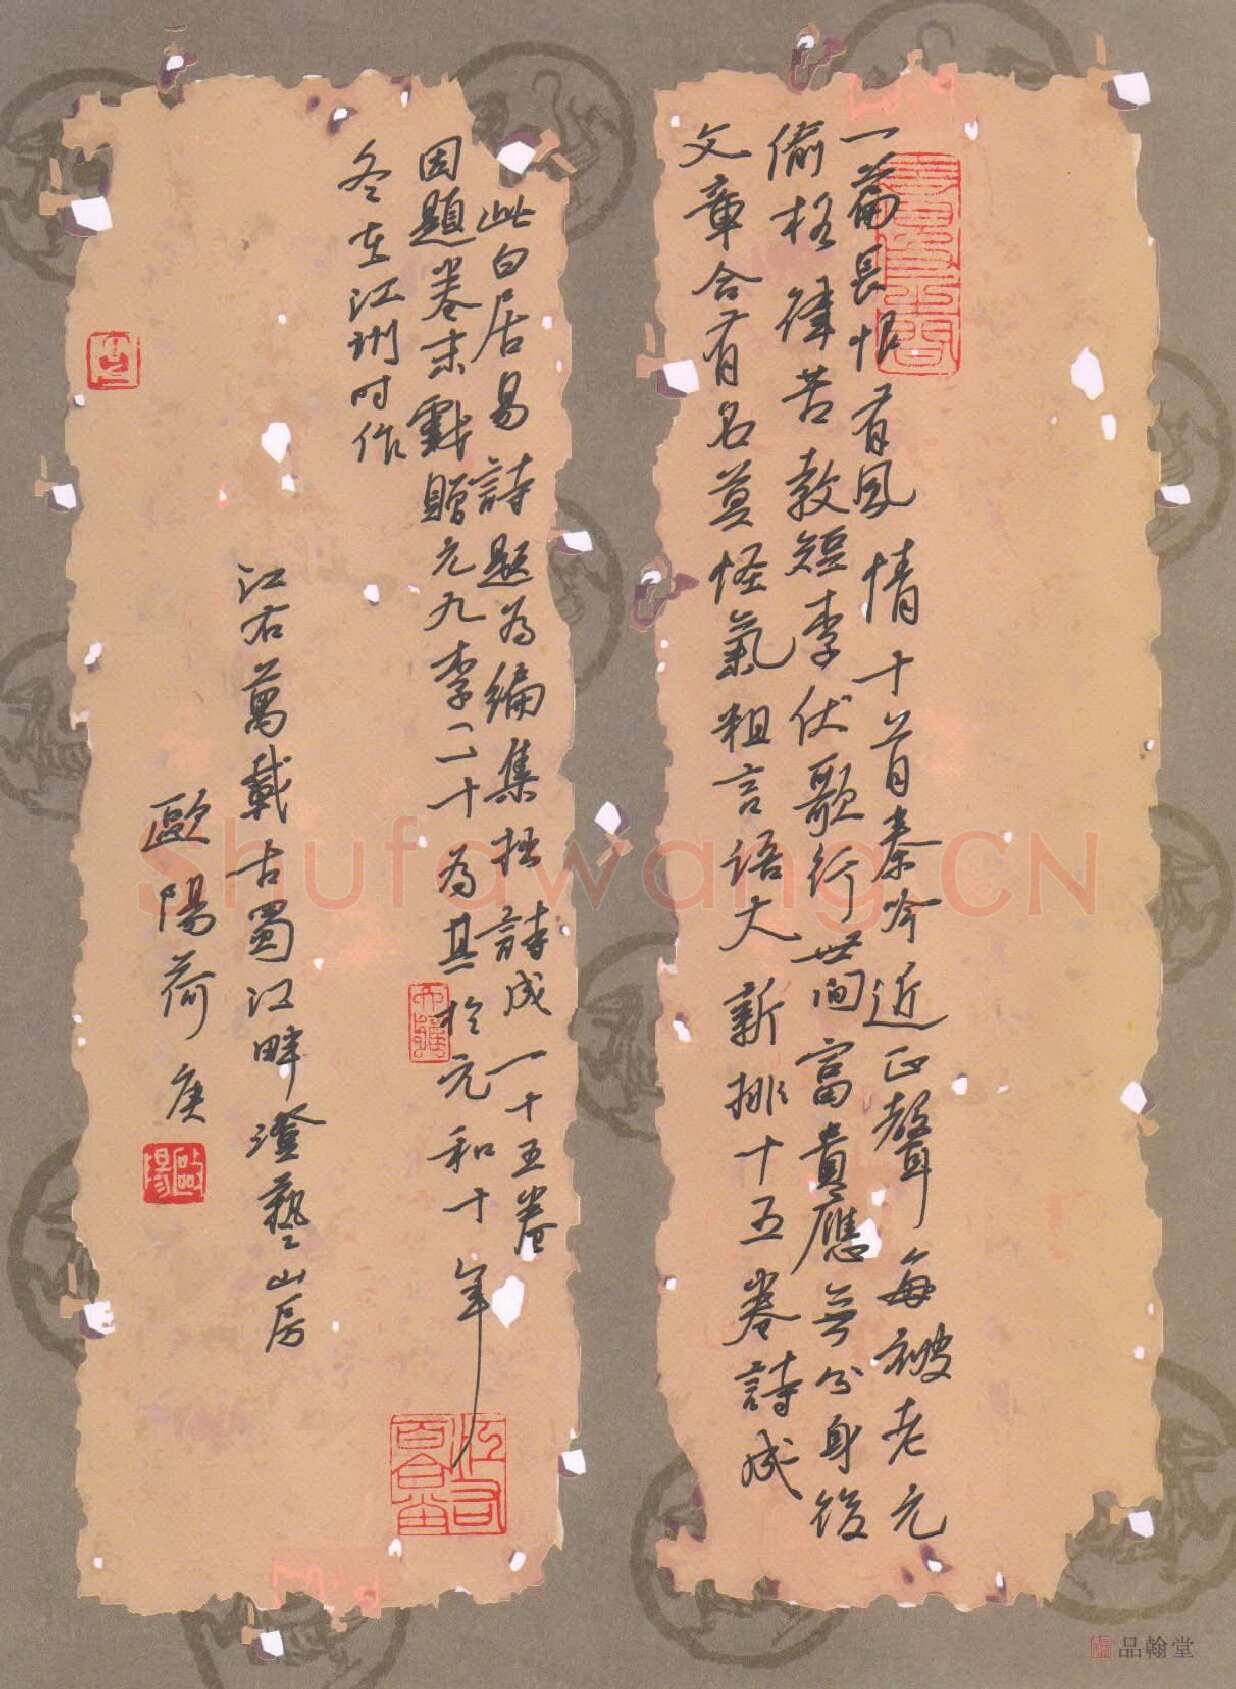 一篇長恨有風情十首秦吟近正聲每被老元
偷格律苦教短李伏歌行世間富貴應無分身後
文章合有名莫怪氣粗言語大新排十五卷詩成
此白居易詩題為編集拙詩成一十五卷
因題卷末戲贈元九李二十為其於元和十年
冬在江州時作
江右萬載古蜀江畔澄藝山房
歐陽荷庚
Shufawang.CN
品翰堂